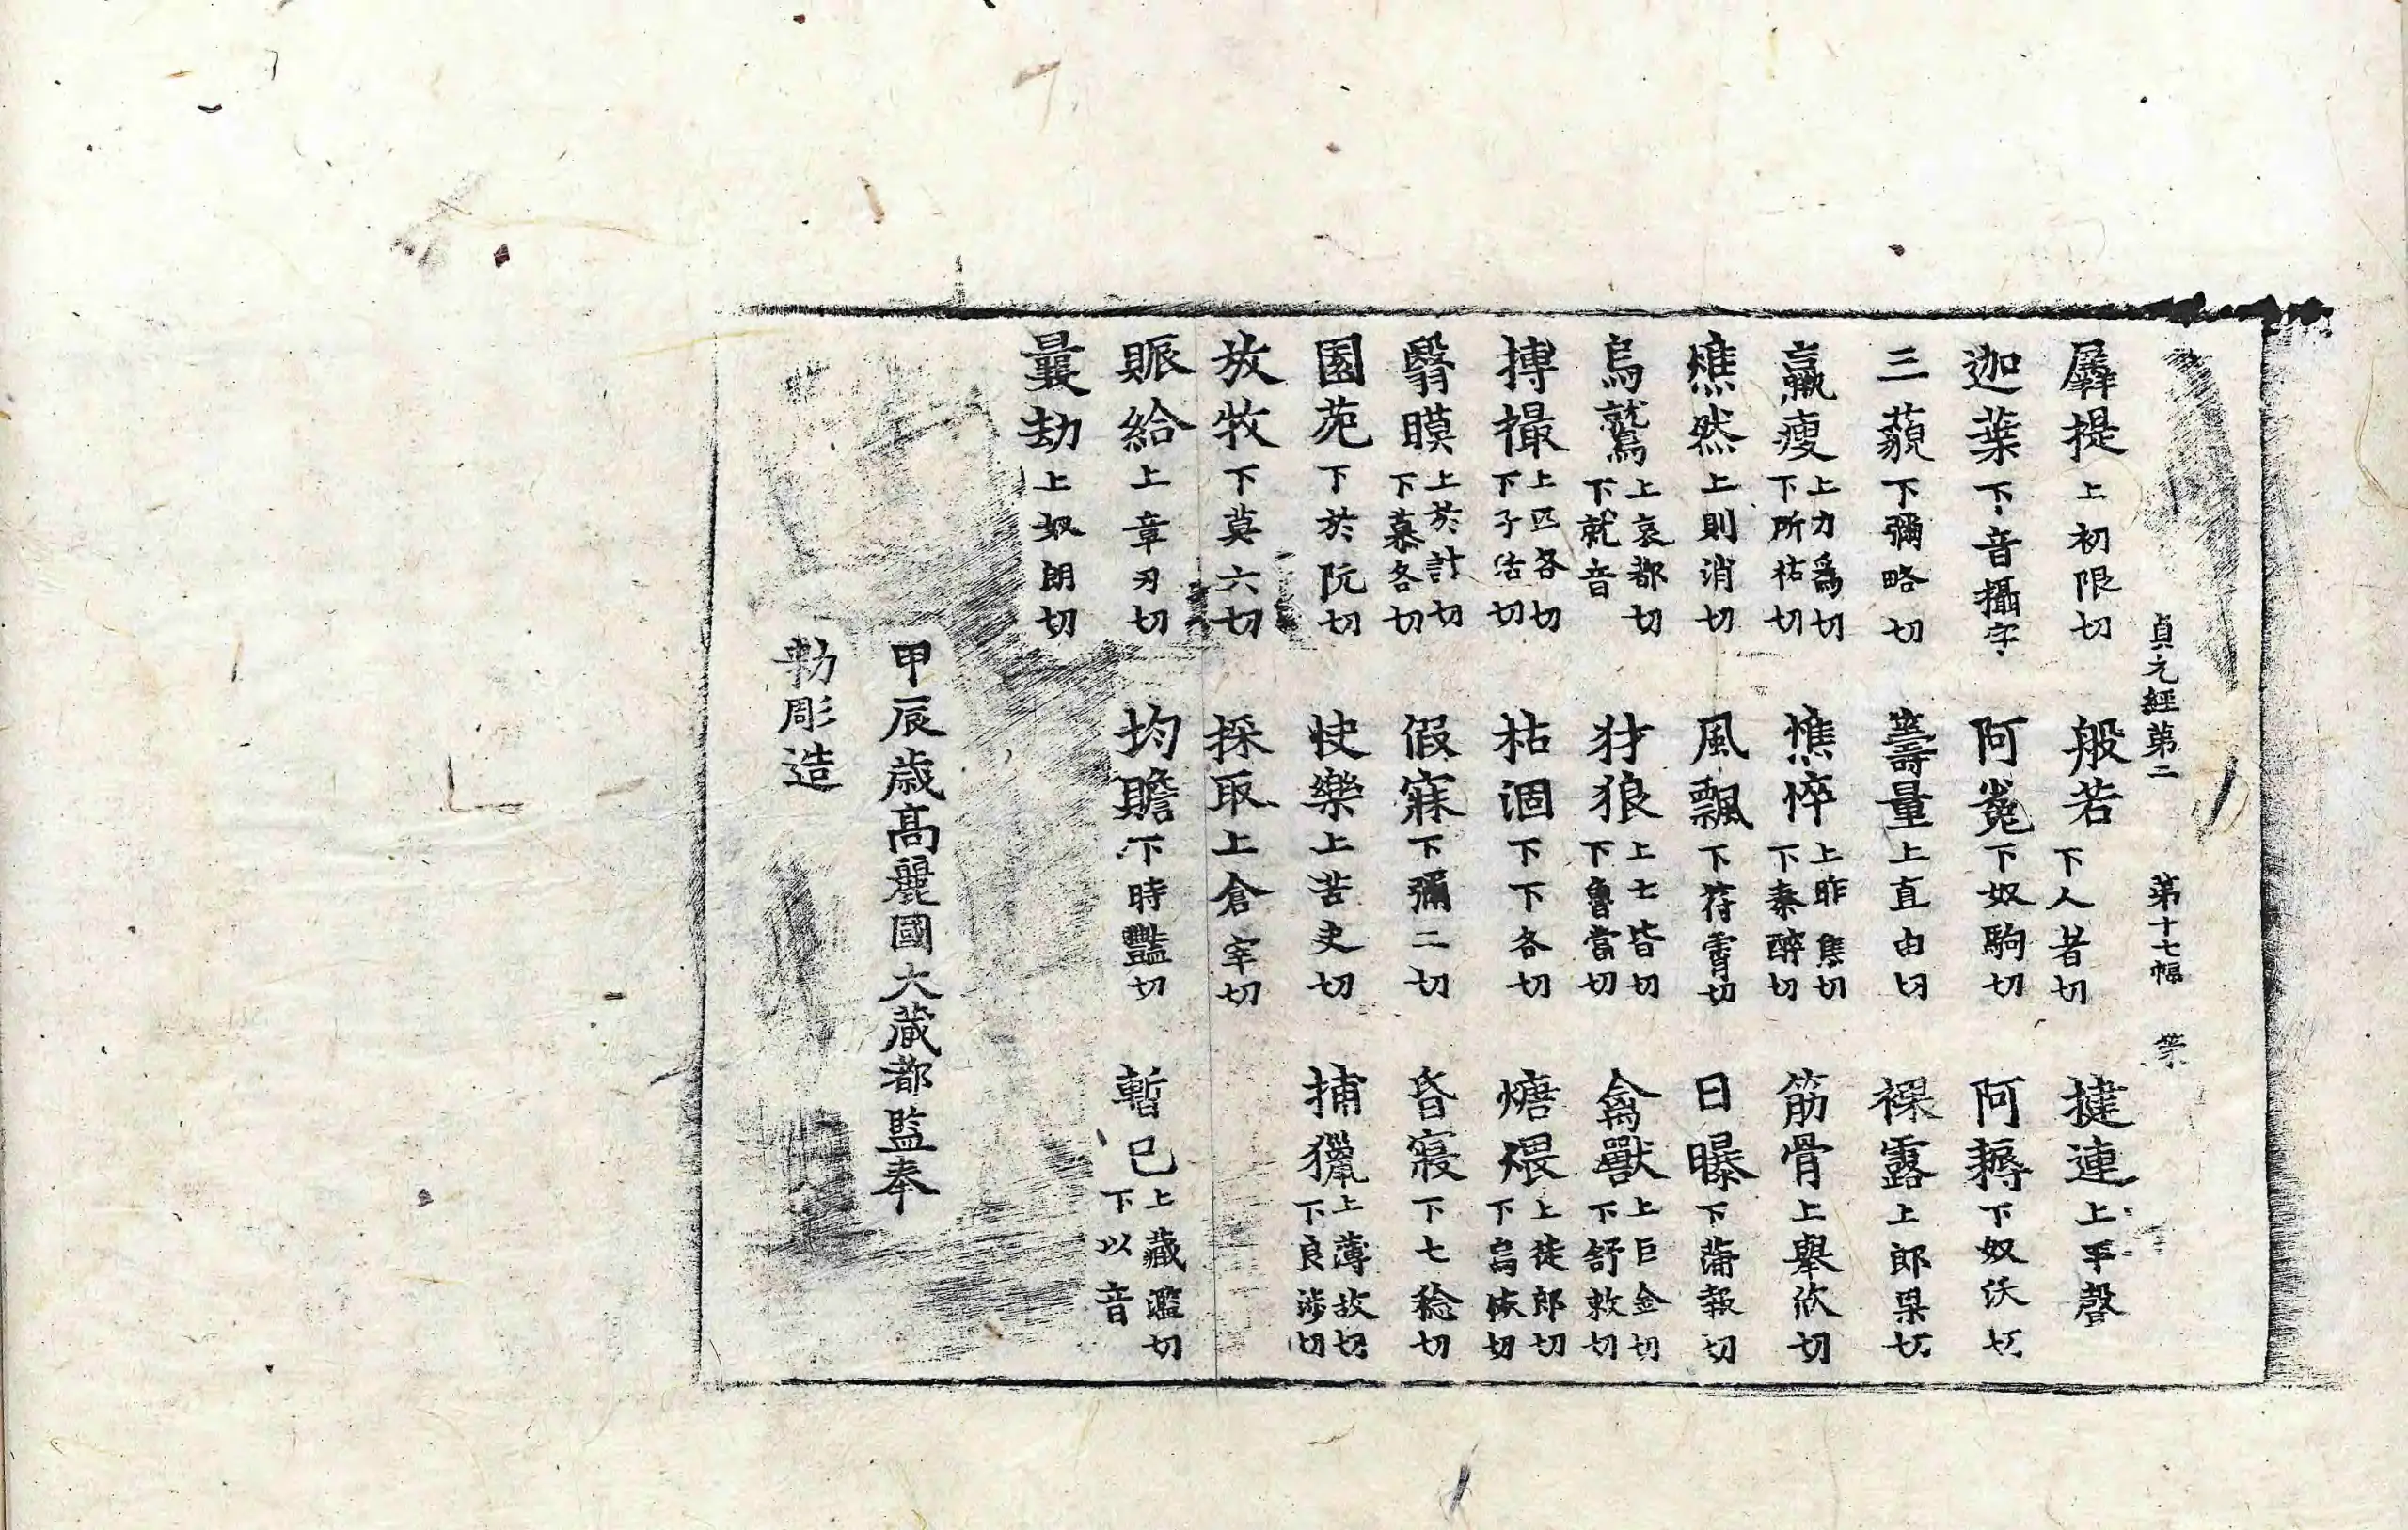 貞元經第二 第十七幅 第
羼提上初限切 般若下人者切 揵連上平聲
迦葉下音攝字 阿㝹下奴駒切 阿耨下奴沃切
三藐下彌略切 壽量上直由切 裸露上郎果切
羸瘦上力爲切下所祐切 憔悴上昨焦切下秦醉切 筋骨上舉欣切
燋然上則消切 風飄下符霄切 日曝下蒲報切
烏鷲上哀都切下就音 犲狼上士皆切下魯當切 禽獸上巨金切下舒救切
搏撮上匹各切下子活切 枯涸下下各切 煻煨上徒郎切下烏恢切
翳瞙上於計切下慕各切 假寐下彌二切 昏寢下七稔切
園苑下於阮切 快樂上苦夬切 捕獵上薄故切下良涉切
放牧下莫六切 採取上倉宰切
賑給上章刃切 均贍下時豔切 暫已上藏濫切下以音
曩劫上奴朗切
甲辰歲高麗國大藏都監奉
勅彫造